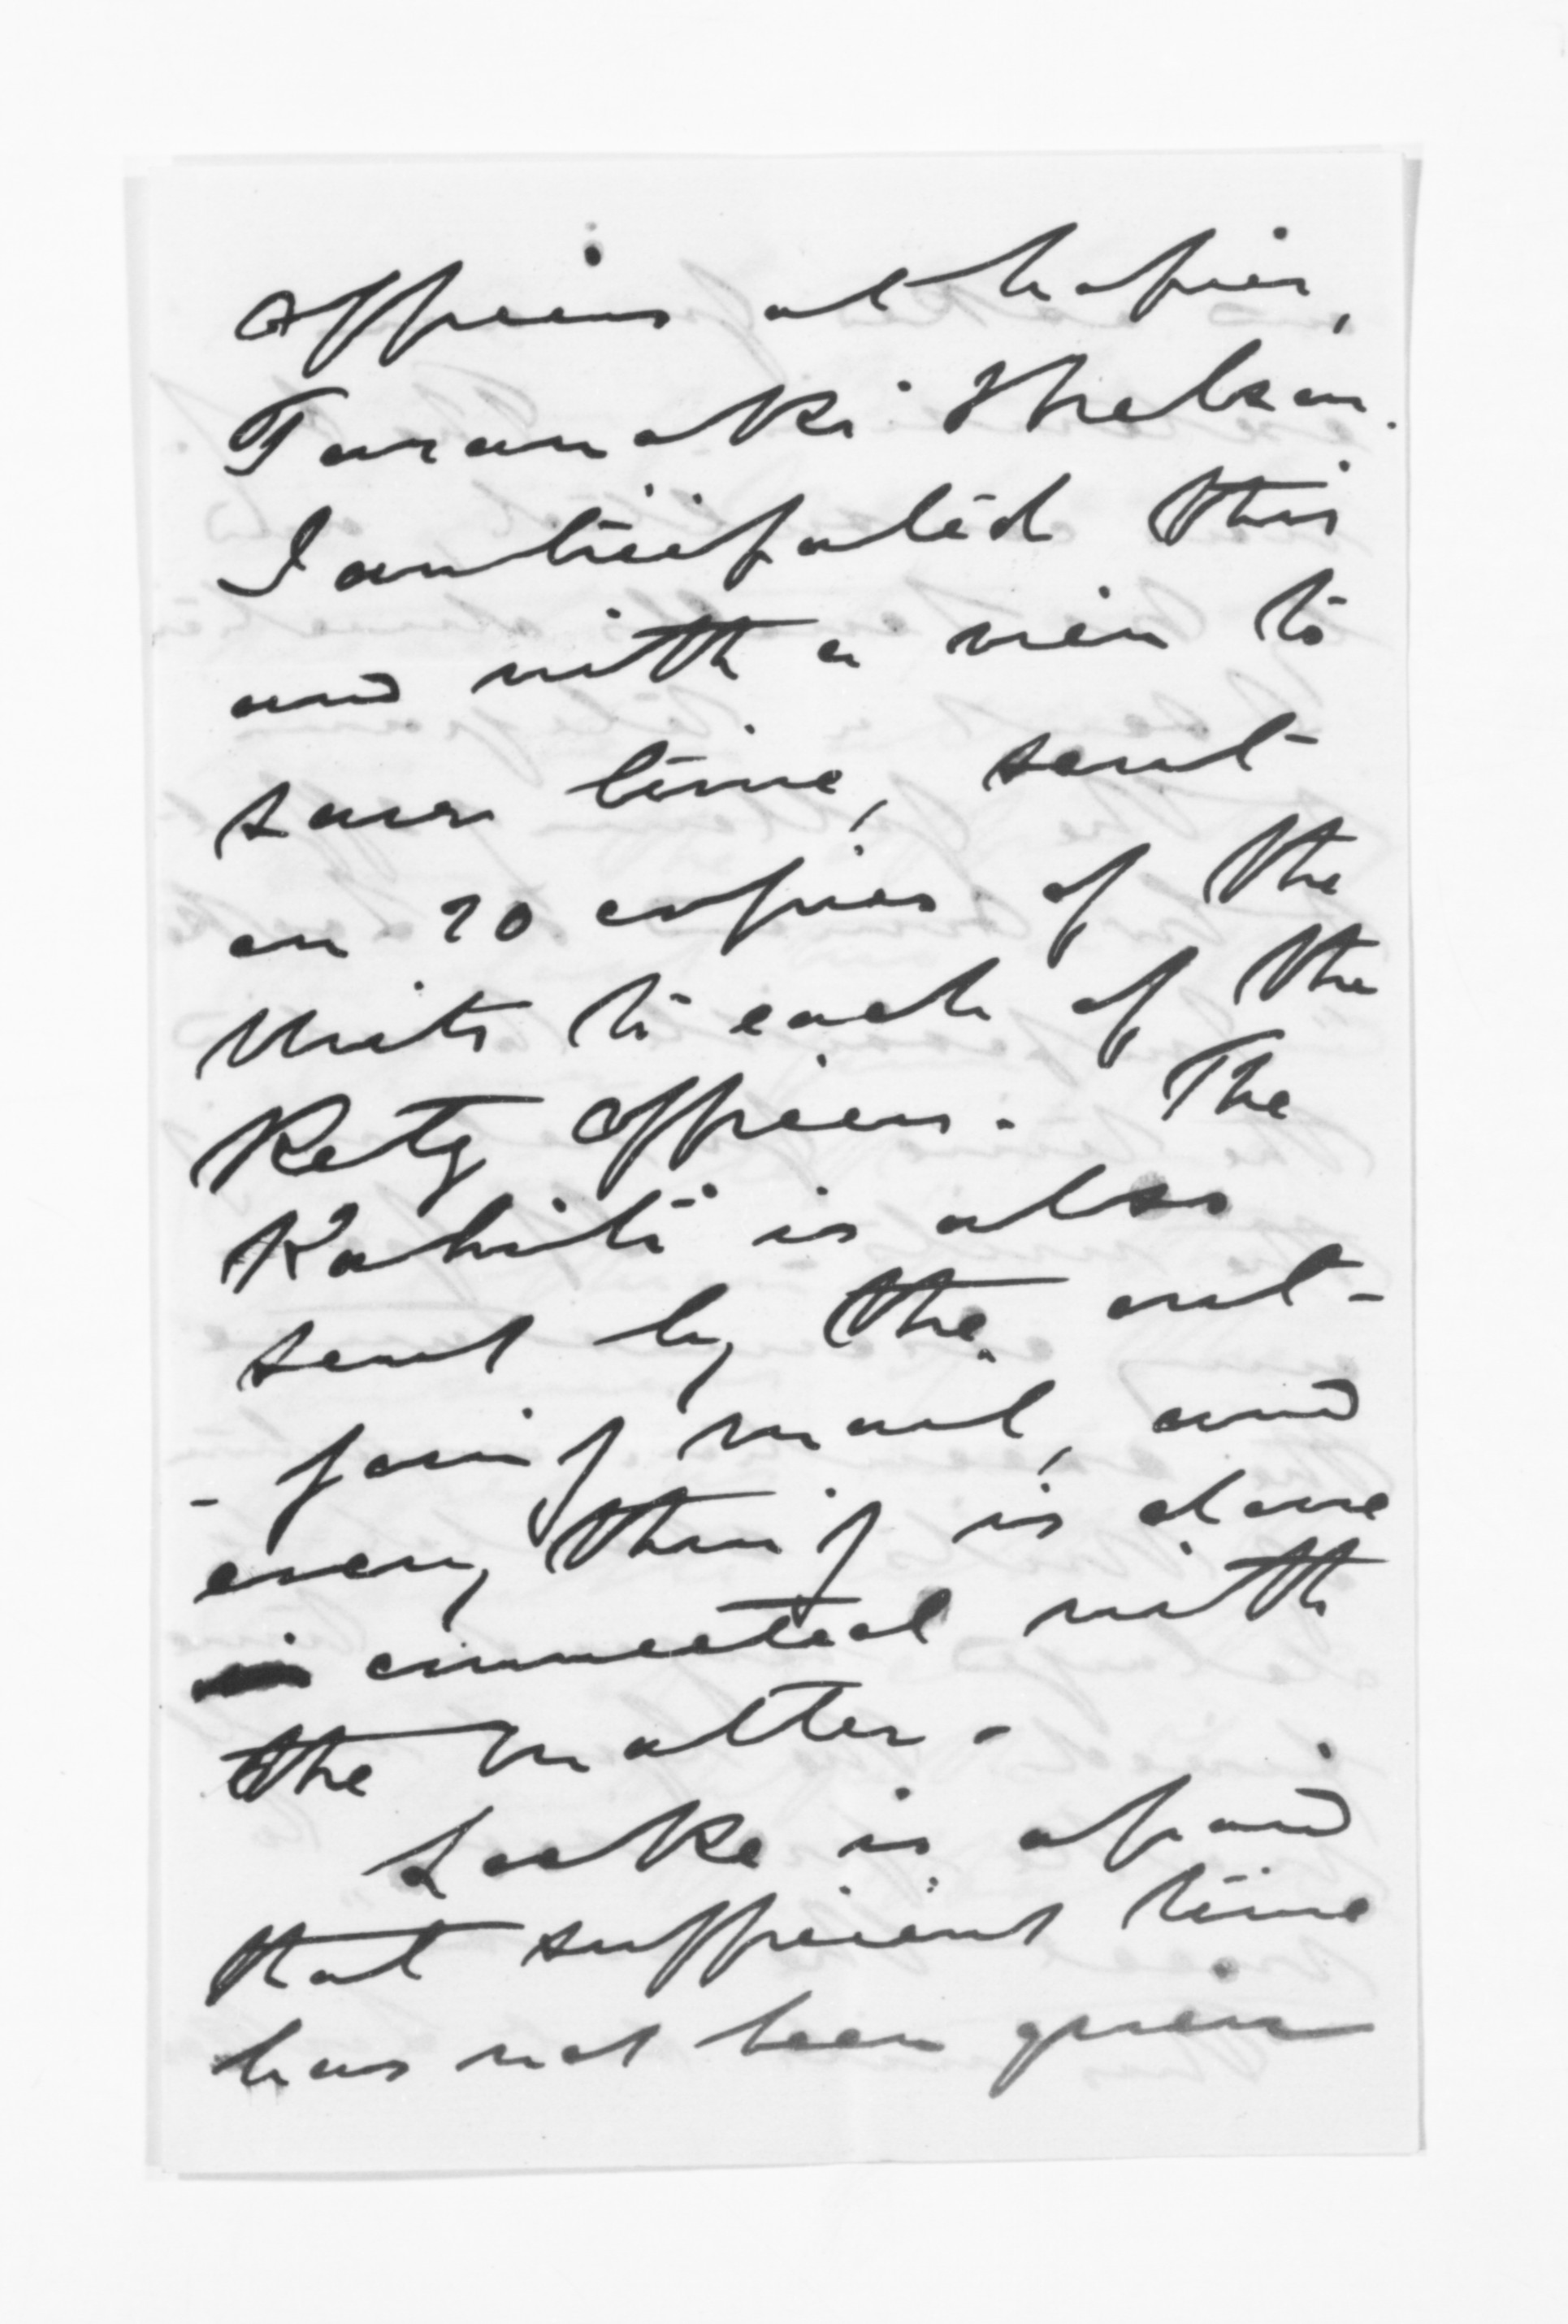 Officers at Napier,
Taranaki & Nelson.
I anticipated this
and with a view to
save time, sent
on 20 copies of the
Writs to each of the
Retg Officers. The
Kahiti is also
sent by the out-
-going mail, and
every thing is done
connected with
the matter.
Locke is afraid
that sufficient time
has not been given